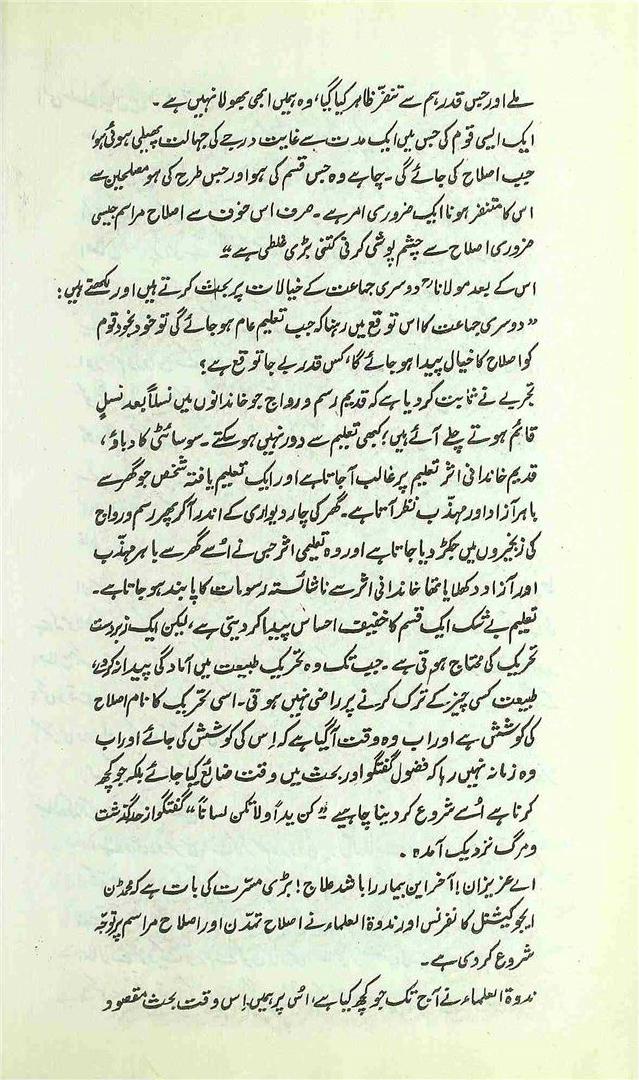 ملے اور جس قدر ہم سے تنفّر ظاہر کیا گیا، وہ ہمیں ابھی بھولا نہیں ہے۔
ایک ایسی قوم کی جس میں ایک مدت سے غایت درجے کی جہالت پھیلی ہوئی ہو،
جب اصلاح کی جائے گی۔ چاہے وہ جس قسم کی ہو اور جس طرح کی ہو مصلحین سے
اس کا متنفر ہونا ایک ضروری امر ہے۔ صرف اس خوف سے اصلاح مراسم جیسی
ضروری اصلاح سے چشم پوشی کرنی کتنی بڑی غلطی ہے"
اس کے بعد مولاناؒ دوسری جماعت کے خیالات پر بحث کرتے ہیں اور لکھتے ہیں:
"دوسری جماعت کا اس توقع میں رہنا کہ جب تعلیم عام ہو جائے گی تو خود بخود قوم
کو اصلاح کا خیال پیدا ہو جائے گا، کس قدر بے جا توقع ہے؟
تجربے نے ثابت کر دیا ہے کہ قدیم رسم و رواج جو خاندانوں میں نسلاً بعد نسلٍ
قائم ہوتے چلے آئے ہیں؛ کبھی تعلیم سے دور نہیں ہو سکتے۔ سوسائٹی کا دباؤ،
قدیم خاندانی اثر تعلیم پر غالب آ جاتا ہے اور ایک تعلیم یافتہ شخص جو گھر سے
باہر آزاد اور مہذّب نظر آتا ہے۔ گھر کی چار دیواری کے اندر آ کر پھر رسم و رواج
کی زنجیروں میں جکڑ دیا جاتا ہے اور وہ تعلیمی اثر جس نے اُسے گھر سے باہر مہذّب
اور آزاد دکھلایا تھا خاندانی اثر سے ناشائستہ رسومات کا پابند ہو جاتا ہے۔
تعلیم بے شک ایک قسم کا خفیف احساس پیدا کر دیتی ہے، لیکن ایک زبردست
تحریک کی محتاج ہوتی ہے۔ جب تک وہ تحریک طبیعت میں آمادگی پیدا نہ کر دے،
طبیعت کسی چیز کے ترک کرنے پر راضی نہیں ہوتی۔ اسی تحریک کا نام اصلاح
کی کوشش ہے اور اب وہ وقت آ گیا ہے کہ اِس کی کوشش کی جائے اور اب
وہ زمانہ نہیں رہا کہ فضول گفتگو اور بحث میں وقت ضائع کیا جائے بلکہ جو کچھ
کرنا ہے اُسے شروع کر دینا چاہیے "کن یداً ولا تکن لساناً" گفتگو از حد گذشت
و مرگ نزدیک آمدہ۔
اے عزیزان! آخر این بیمار را باشد علاج! بڑی مسّرت کی بات ہے کہ محمڈن
ایجوکیشنل کانفرنس اور ندوۃ العلماء نے اصلاح تمدّن اور اصلاح مراسم پر توجّہ
شروع کر دی ہے۔
ندوۃ العلماء نے آج تک جو کچھ کیا ہے، اُس پر ہمیں اِس وقت بحث مقصود